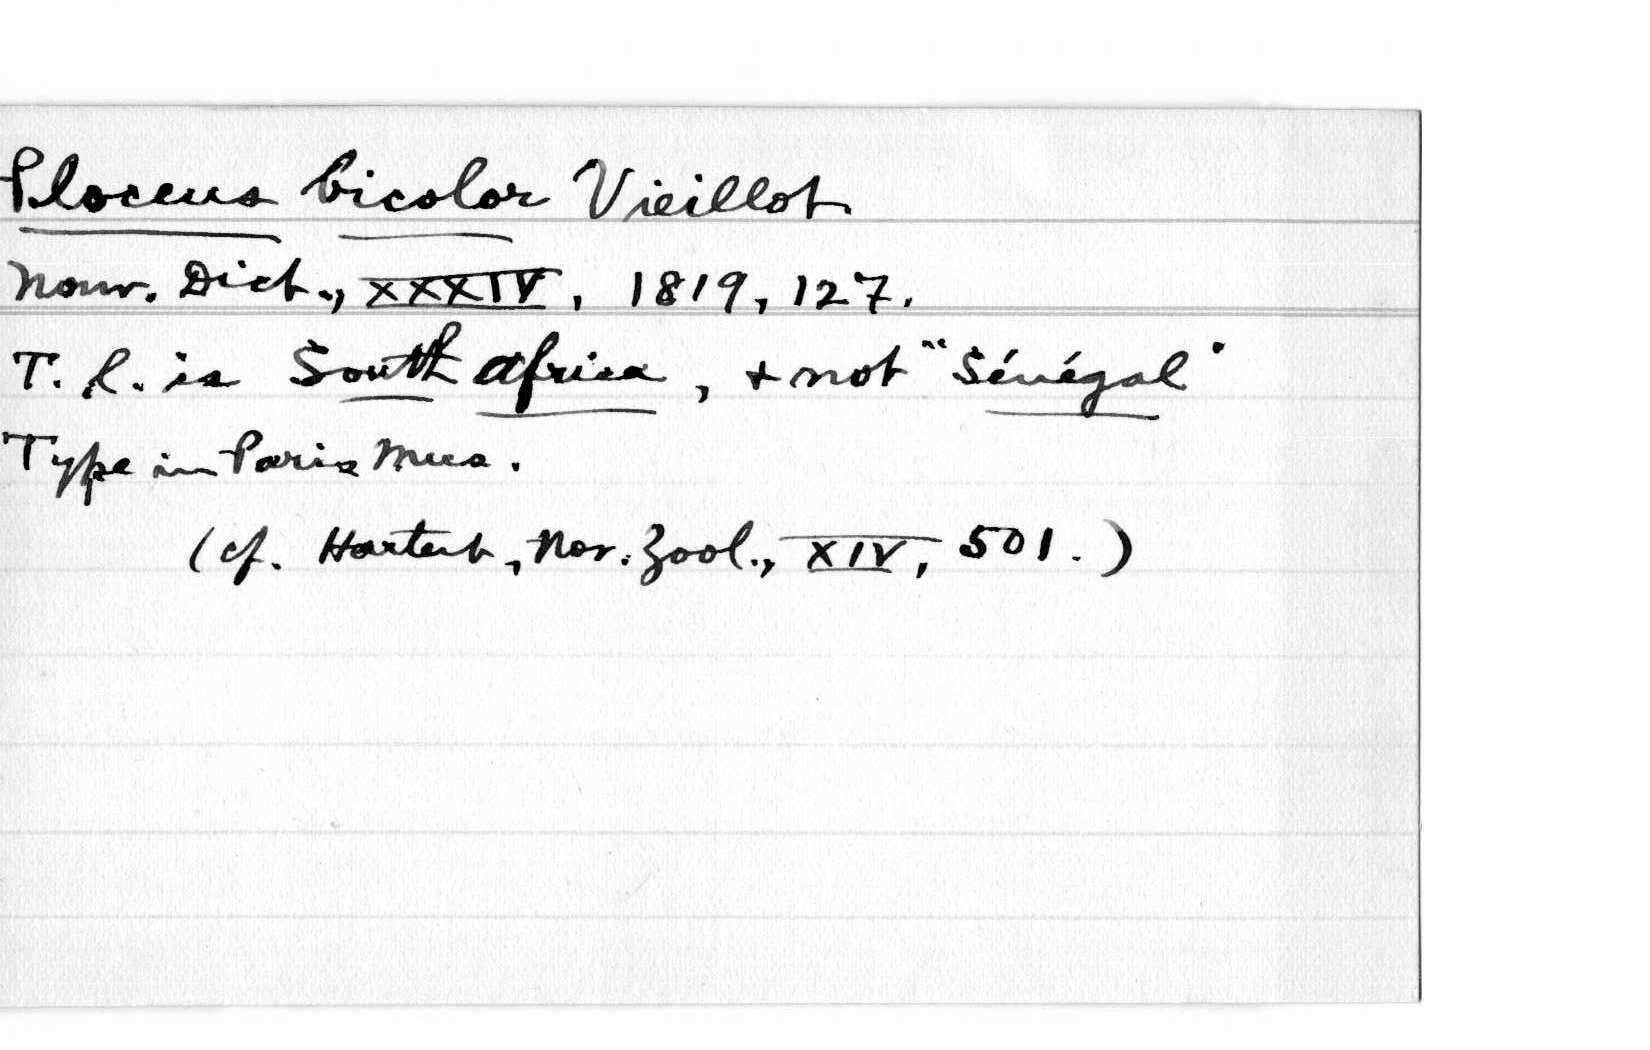 Ploceus bicolor Vieillot
Nouv. Dict., XXXIV, 1819, 127.
T. l. is South Africa, + not "Sénégal"
Type in Paris Mus.
(cf. Hartert, Nov. Zool., XIV, 501.)